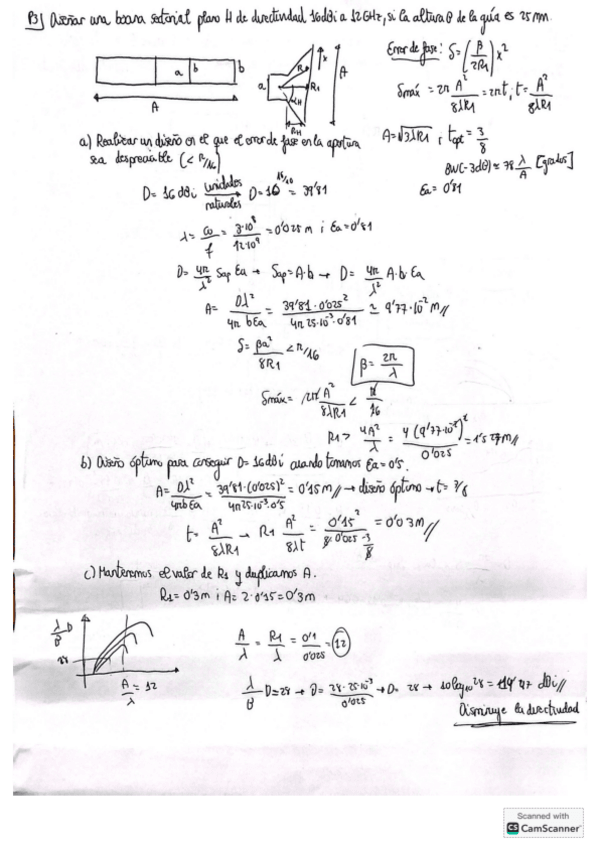 P3) Diseñar una bocina sectorial plano H de directividad 16dBi a 12GHz, si la altura B de la guía es 25 mm.
a b b
A
a R x R1 A
αH
RH
Error de fase: δ = (β/2R1) x²
δmáx = 2π A²/8λR1 = 2πt ; t = A²/8λR1
A = √3λR1 ; topt = 3/8
BW(-3dB) ≈ 78 λ/A [grados]
Ea = 0'81
a) Realizar un diseño en el que el error de fase en la apertura
sea despreciable (< π/16)
D = 16 dBi unidades naturales → D = 10^16/10 = 39'81
λ = co/f = 3·10⁸/12·10⁹ = 0'025 m ; Ea = 0'81
D = 4π/λ² Sap Ea → Sap = A·b → D = 4π/λ² A·b·Ea
A = Dλ²/4π b Ea = 39'81·0'025²/4π 25·10⁻³·0'81 ≃ 9'77·10⁻² m//
δ = βa²/8R1 < π/16
β = 2π/λ
δmáx = 2π A²/8λR1 < π/16
R1 > 4A²/λ = 4(9'77·10⁻²)²/0'025 = 1'527m//
b) Diseño óptimo para conseguir D = 16dBi cuando tomamos Ea = 0'5.
A = Dλ²/4πbEa = 39'81·(0'025)²/4π25·10⁻³·0'5 = 0'15 m// → diseño óptimo → t = 3/8
t = A²/8λR1 → R1 A²/8λt = 0'15²/8·0'025·3/8 = 0'03m//
c) Mantenemos el valor de R1 y duplicamos A.
R1 = 0'3m ; A = 2·0'15 = 0'3m
λ/B D
28
A/λ = 12
A/λ = R1/λ = 0'1/0'025 = 12
λ/B D = 28 → D = 28·25·10⁻³/0'025 → D = 28 → 10log10 28 = 14'47 dBi//
Disminuye la directividad
Scanned with
CS CamScanner